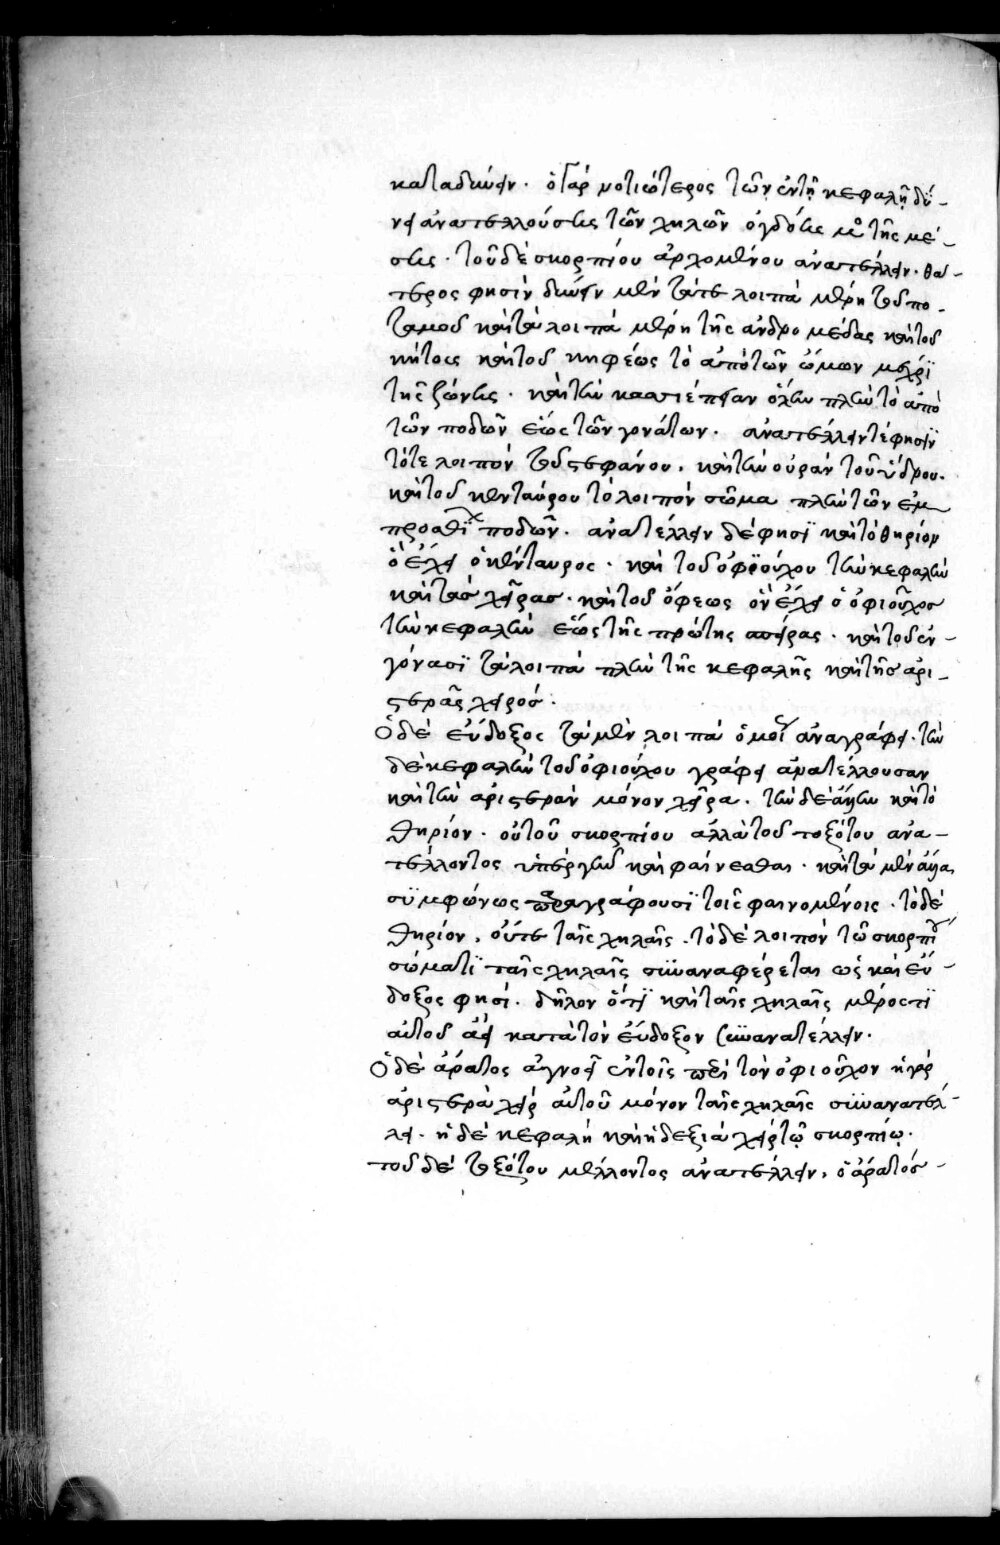 καταδύνειν. ὁ γὰρ νοτιώτερος τῶν ἐν τῇ κεφαλῇ δύ-
νει ἀνατελλούσης τῶν χηλῶν ὀγδόης μο τῆς μέ-
σης. τοῦ δὲ σκορπίου ἀρχομένου ἀνατέλλειν. θα-
τερος φησὶν δύνειν μὲν τά τε λοιπὰ μέρη τοῦ πο-
ταμοῦ καὶ τὰ λοιπὰ μέρη τῆς ἀνδρομέδας καὶ τοῦ
κήτους καὶ τοῦ κηφέως τὸ ἀπὸ τῶν ὤμων μέχρι
τῆς ζώνης. καὶ τὴν κασσιέπειαν ὅλην πλὴν τὸ ἀπὸ
τῶν ποδῶν ἕως τῶν γονάτων. ἀνατέλλειν τέ φησιν
τότε λοιπὸν τοῦ στεφάνου. καὶ τὴν οὐρὰν τοῦ ὕδρου.
καὶ τοῦ κενταύρου τὸ λοιπὸν σῶμα πλὴν τῶν ἐμ-
προσθίων ποδῶν. ἀνατέλλειν δέ φησι καὶ τὸ θηρίον
ὃ ἔχει ὁ κένταυρος. καὶ τοῦ ὀφιούχου τὴν κεφαλὴν
καὶ τὰς χεῖρας. καὶ τοῦ ὄφεως ὃν ἔχει ὁ ὀφιοῦχος
τὴν κεφαλὴν ἕως τῆς πρώτης σπείρας. καὶ τοῦ ἐν-
γόνασι τὰ λοιπὰ πλὴν τῆς κεφαλῆς καὶ τῆς ἀρι-
στερᾶς χειρός.
Ὁ δὲ εὔδοξος τὰ μὲν λοιπὰ ὁμοίως ἀναγράφει. τὴν
δὲ κεφαλὴν τοῦ ὀφιούχου γράφει ἀνατέλλουσαν
καὶ τὴν ἀριστερὰν μόνον χεῖρα. τὴν δὲ καὶ τὸ
θηρίον. οὐ τοῦ σκορπίου ἀλλὰ τοῦ τοξότου ἀνα-
τέλλοντος ὑπὲρ γῆν καὶ φαίνεσθαι. καὶ τὰ μὲν ἄλλα
συμφώνως ἀναγράφουσι τοῖς φαινομένοις. τὸ δὲ
θηρίον. οὔτε ταῖς χηλαῖς. τὸ δὲ λοιπὸν τῶ σκορπίου
σώματι ταῖς χηλαῖς συναναφέρεται ὡς καὶ εὔ-
δοξος φησί. δῆλον ὅτι καὶ ταῖς χηλαῖς μέρος τι
αὐτοῦ δεῖ κατὰ τὸν εὔδοξον συνανατέλλειν.
Ὁ δὲ ἄρατος ἀγνοεῖ ἐν τοῖς περὶ τὸν ὀφιοῦχον ἡ γὰρ
ἀριστερὰ χεὶρ αὐτοῦ μόνον ταῖς χηλαῖς συνανατέλ-
λει. ἡ δὲ κεφαλὴ καὶ ἡ δεξιὰ χεὶρ τῷ σκορπίῳ.
τοῦ δὲ τοξότου μέλλοντος ἀνατέλλειν, ὁ ἄρατός